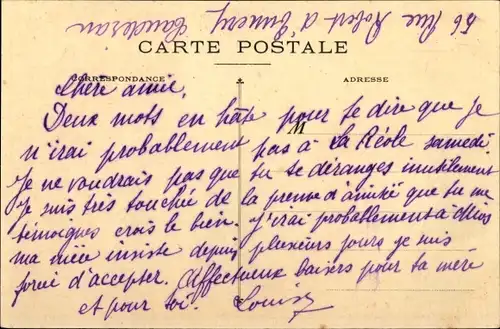 56 Rue Robert d'Ennery Caudéran
CARTE POSTALE
CORRESPONDANCE
ADRESSE
M
Chère amie,
Deux mots en hâte pour te dire que je
n'irai probablement pas à La Réole samedi
Je ne voudrais pas que tu te déranges inutilement
Je suis très touchée de la preuve d'amitié que tu me
témoignes crois le bien. J'irai probablement à
ma nièce insiste depuis plusieurs jours je suis
forcé d'accepter. Affectueux baisers pour ta mère
et pour toi. Louise